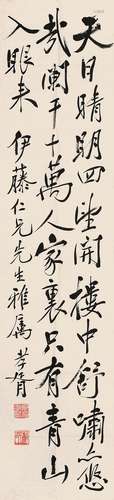 天日晴明四望開樓中舒嘯亦悠
哉闌干十萬人家裏只有青山
入眼來 伊藤仁兄先生雅屬 孝胥